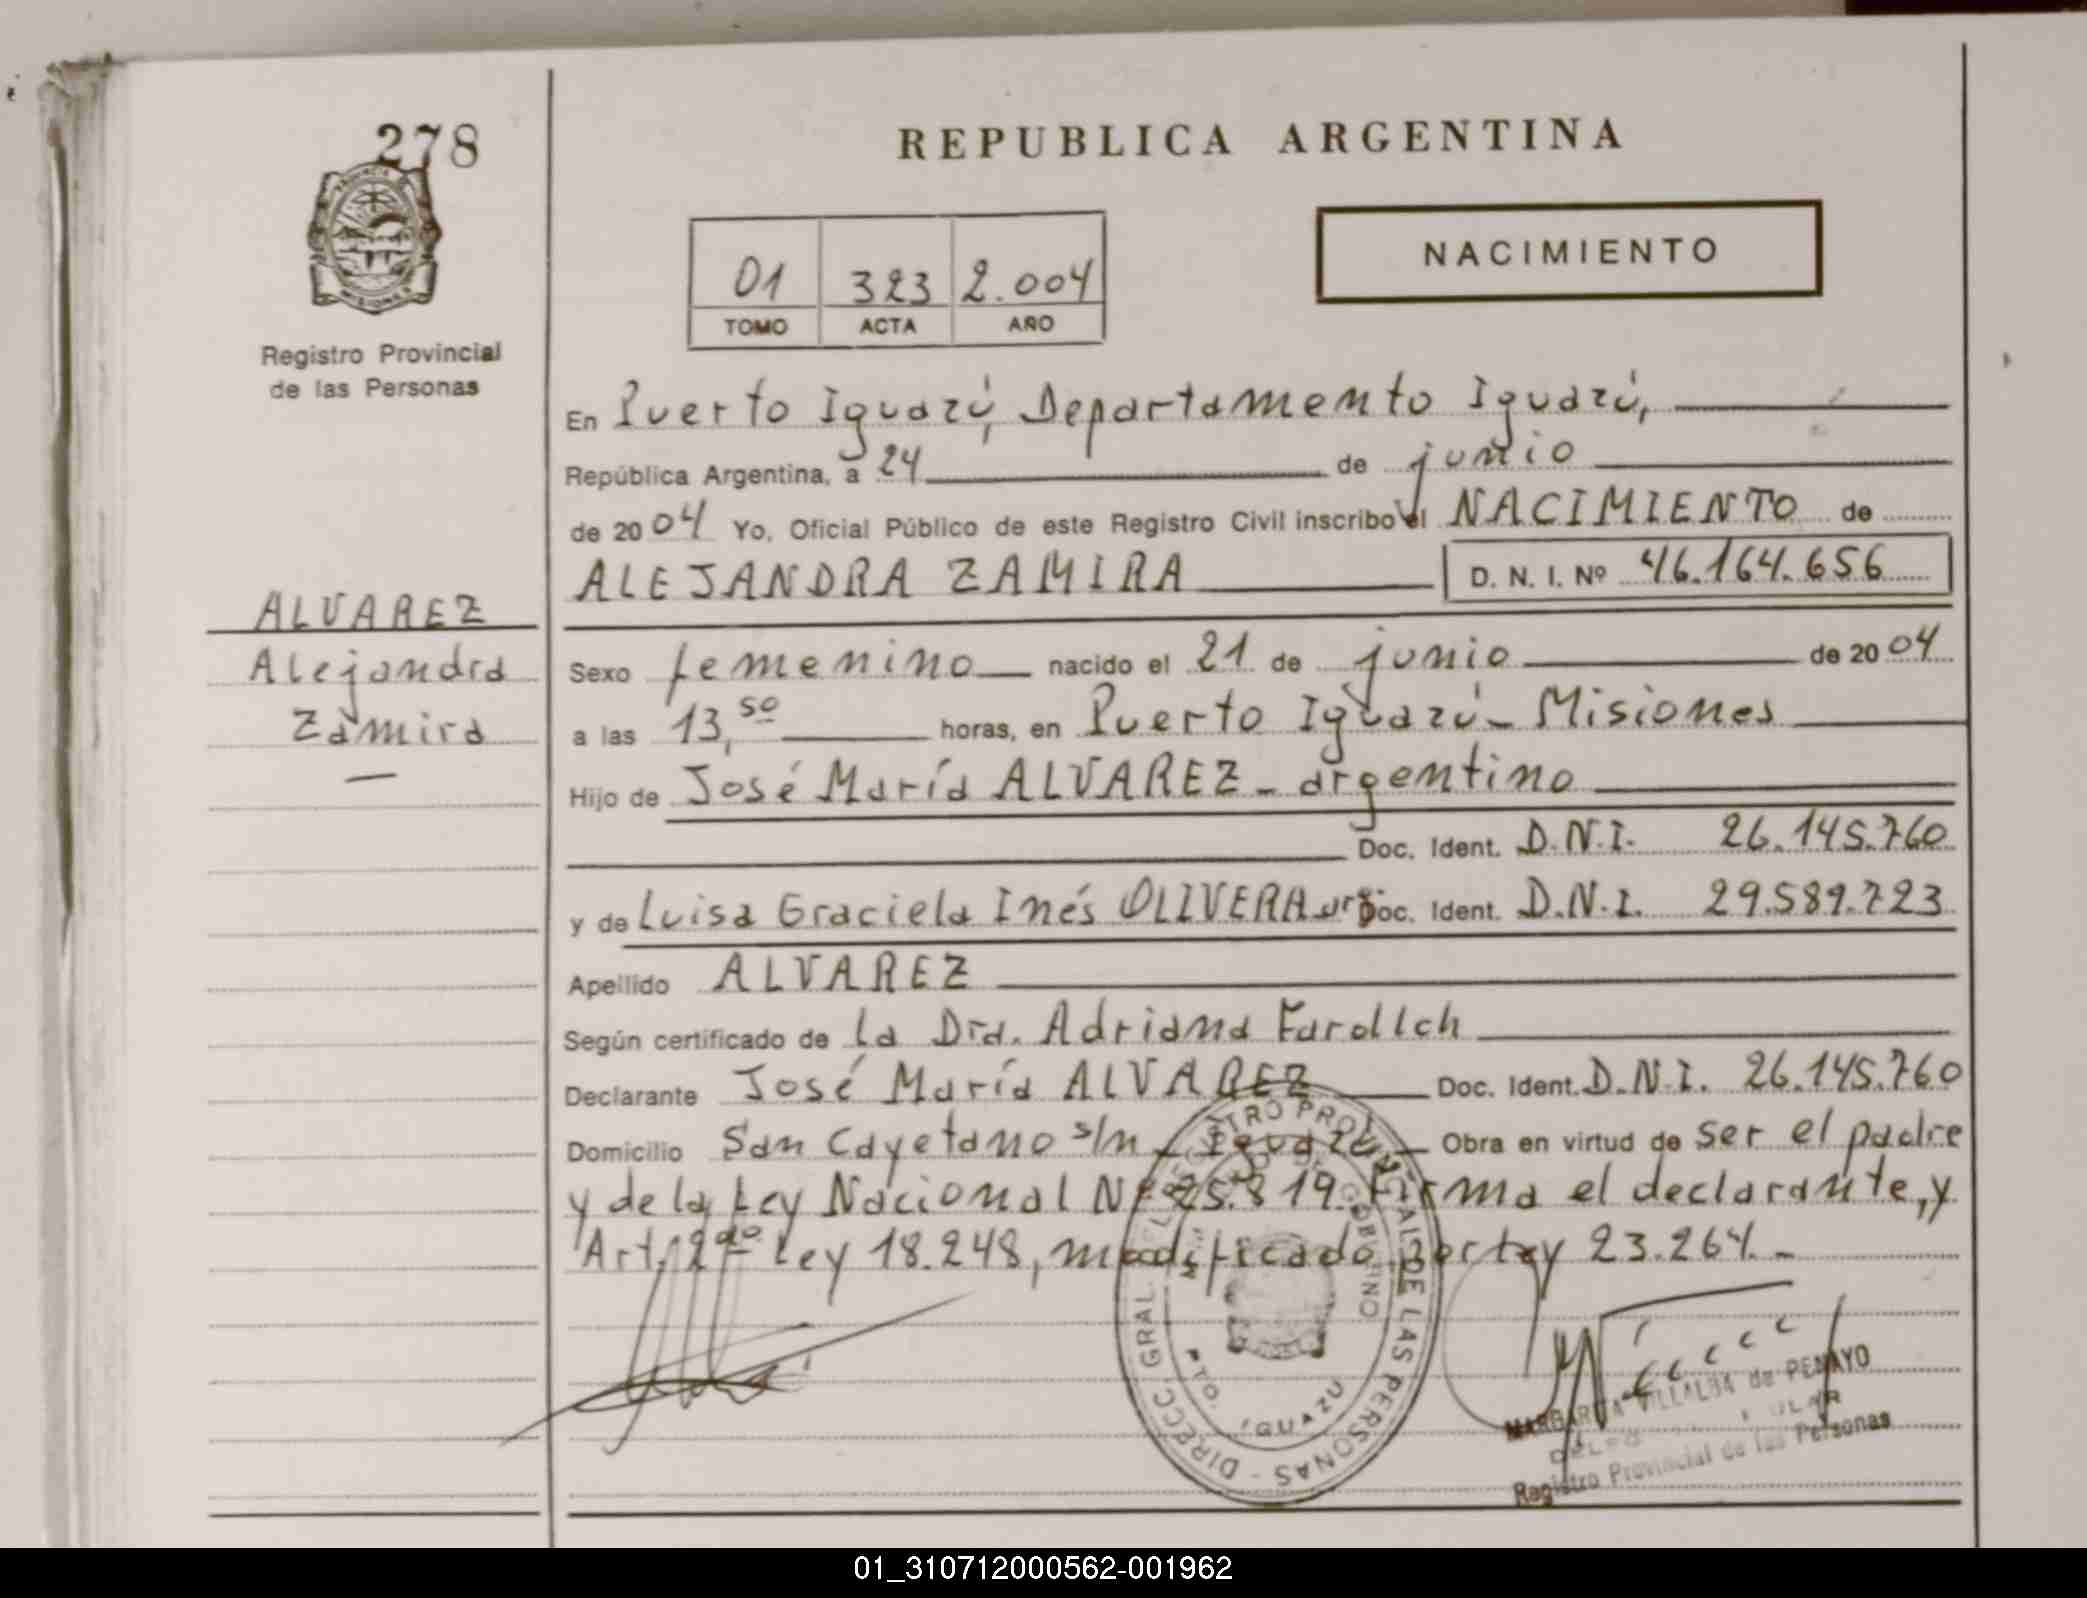 278
REPUBLICA ARGENTINA
NACIMIENTO
01 323 2.004
TOMO ACTA AÑO
Registro Provincial
de las Personas
En Puerto Iguazú, Departamento Iguazú,
República Argentina, a 24 de junio
de 2004 Yo, Oficial Público de este Registro Civil inscribo el NACIMIENTO de
ALEJANDRA ZAMIRA D. N. I. Nº 46.164.656
ALVAREZ
Alejandra
Zamira
Sexo femenino nacido el 21 de junio de 2004
a las 13,50 horas, en Puerto Iguazú - Misiones
Hijo de José María ALVAREZ - argentino
Doc. Ident. D.N.I. 26.145.760
y de Luisa Graciela Inés OLIVERA arg. Doc. Ident. D.N.I. 29.589.723
Apellido ALVAREZ
Según certificado de la Dra. Adriana
Declarante José María ALVAREZ Doc. Ident. D.N.I. 26.145.760
Domicilio San Cayetano s/n - Iguazú Obra en virtud de ser el padre
y de la Ley Nacional Nº 25.819. Firma el declarante, y
Art. 2do Ley 18.248, modificado por Ley 23.264. -
DIRECC. GRAL. DEL REGISTRO PROVINCIAL DE LAS PERSONAS
PTO. IGUAZU
MARGARITA VILLALBA de PENAYO
Registro Provincial de las Personas
01_310712000562-001962